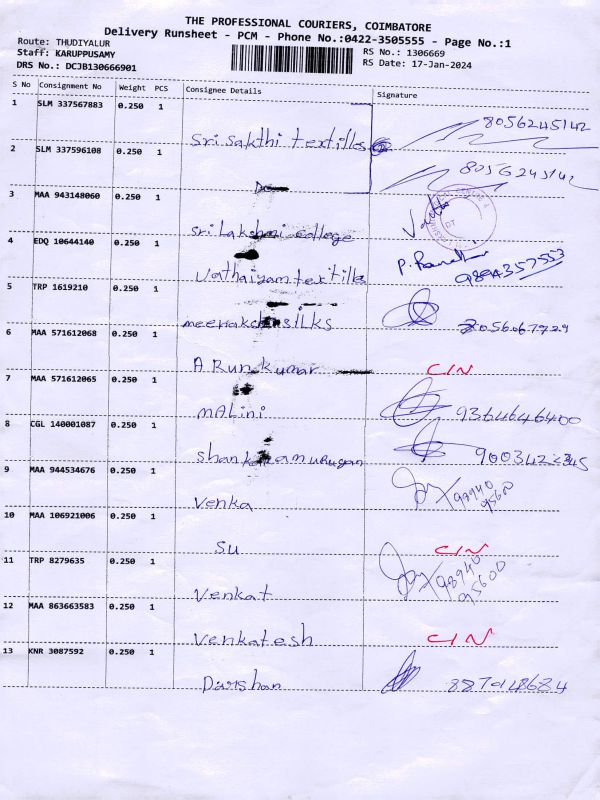 THE PROFESSIONAL COURIERS, COIMBATORE
Delivery Runsheet - PCM - Phone No.:0422-3505555 - Page No.:1
Route: THUDIYALUR
Staff: KARUPPUSAMY RS No.: 1306669
DRS No.: DCJB130666901 RS Date: 17-Jan-2024
S No Consignment No Weight PCS Consignee Details Signature
1 SLM 337567883 0.250 1
Sri.Sakthi textilles 8056245142
2 SLM 337596108 0.250 1
Do 8056245142
3 MAA 943148060 0.250 1
Sri Lakshmi college
4 EDQ 10644140 0.250 1
Vathaiyam textille 9894357553
5 TRP 1619210 0.250 1
meenakchi silks
6 MAA 571612068 0.250 1
A Run kumar C/N
7 MAA 571612065 0.250 1
mALini 9364646400
8 CGL 140001087 0.250 1
Shankaramurugan
9 MAA 944534676 0.250 1
Venka
10 MAA 106921006 0.250 1
Su C/N
11 TRP 8279635 0.250 1
Venkat
12 MAA 863663583 0.250 1
Venkatesh C/N
13 KNR 3087592 0.250 1
Darshan